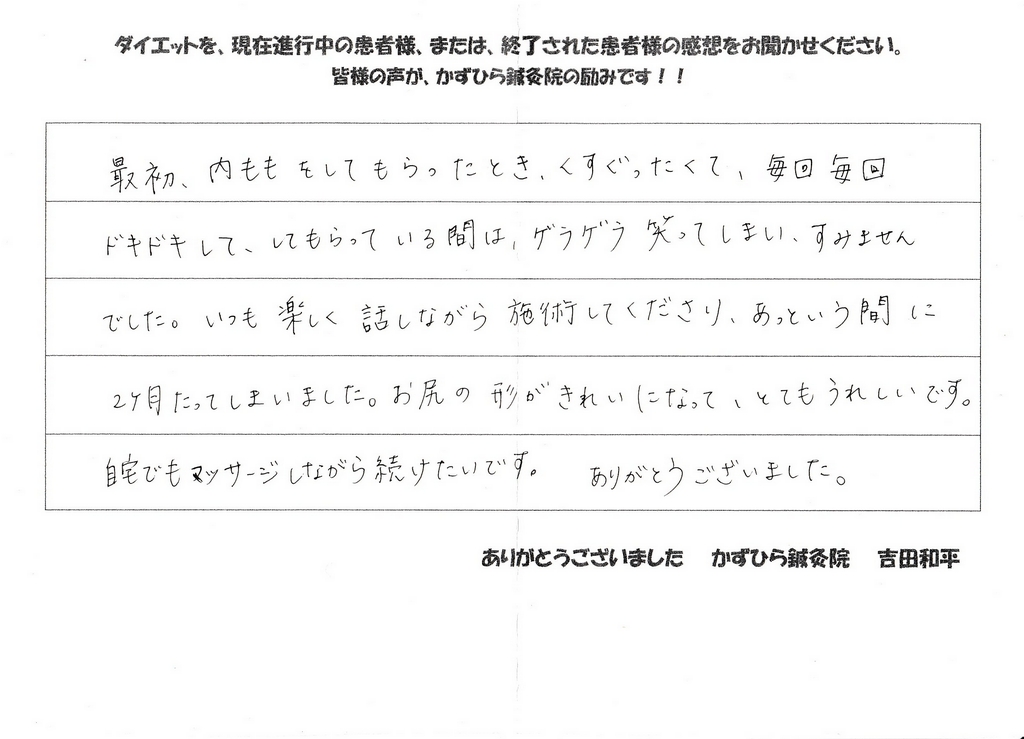 ダイエットを、現在進行中の患者様、または、終了された患者様の感想をお聞かせください。
皆様の声が、かずひら鍼灸院の励みです！！
最初、内ももをしてもらったとき、くすぐったくて、毎回毎回
ドキドキして、してもらっている間は、ゲラゲラ笑ってしまい、すみません
でした。いつも楽しく話しながら施術してくださり、あっという間に
2ヶ月たってしまいました。お尻の形がきれいになって、とてもうれしいです。
自宅でもマッサージしながら続けたいです。 ありがとうございました。
ありがとうございました かずひら鍼灸院 吉田和平